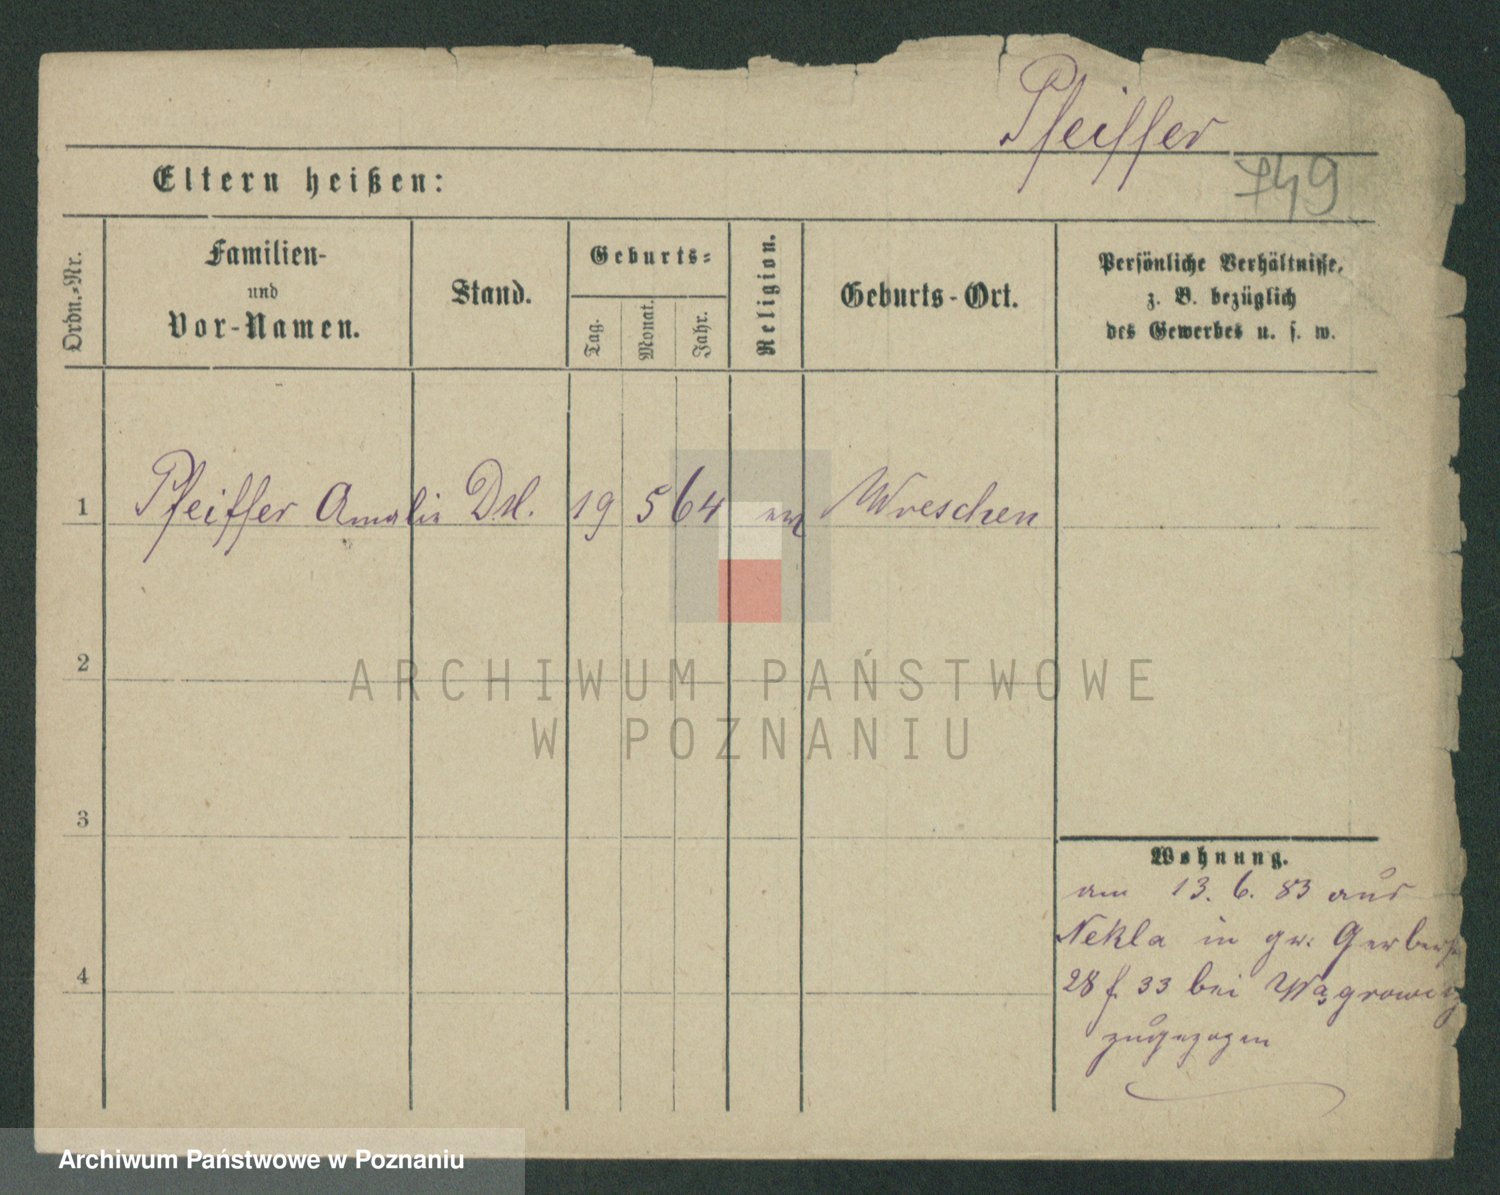 Pfeiffer
749
Eltern heißen:
Ordn.-Nr.
Familien-
und
Vor-Namen.
Stand.
Geburts-
Tag.
Monat.
Jahr.
Religion.
Geburts-Ort.
Persönliche Verhältnisse,
z. B. bezüglich
des Gewerbes u. s. w.
1 Pfeiffer Amalie 19 5 64 Wreschen
2
ARCHIWUM PAŃSTWOWE
W POZNANIU
3
Wohnung.
am 13. 6. 83 aus
Nekla in gr. Gerberst
4
28 f 33 bei Wągrowitz
zugezogen
Archiwum Państwowe w Poznaniu